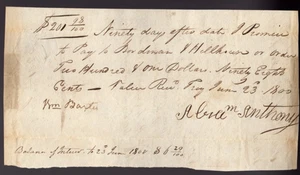 $201 98/100 Ninety days after date I Promise
to Pay to Bordman & Hillhouse or order
Two Hundred & One Dollars Ninety Eight
Cents — Value Recd. Troy June 23d 1800
Wm
Abrm Anthony
Balance of Interest to 23 June 1800 $6 29/100